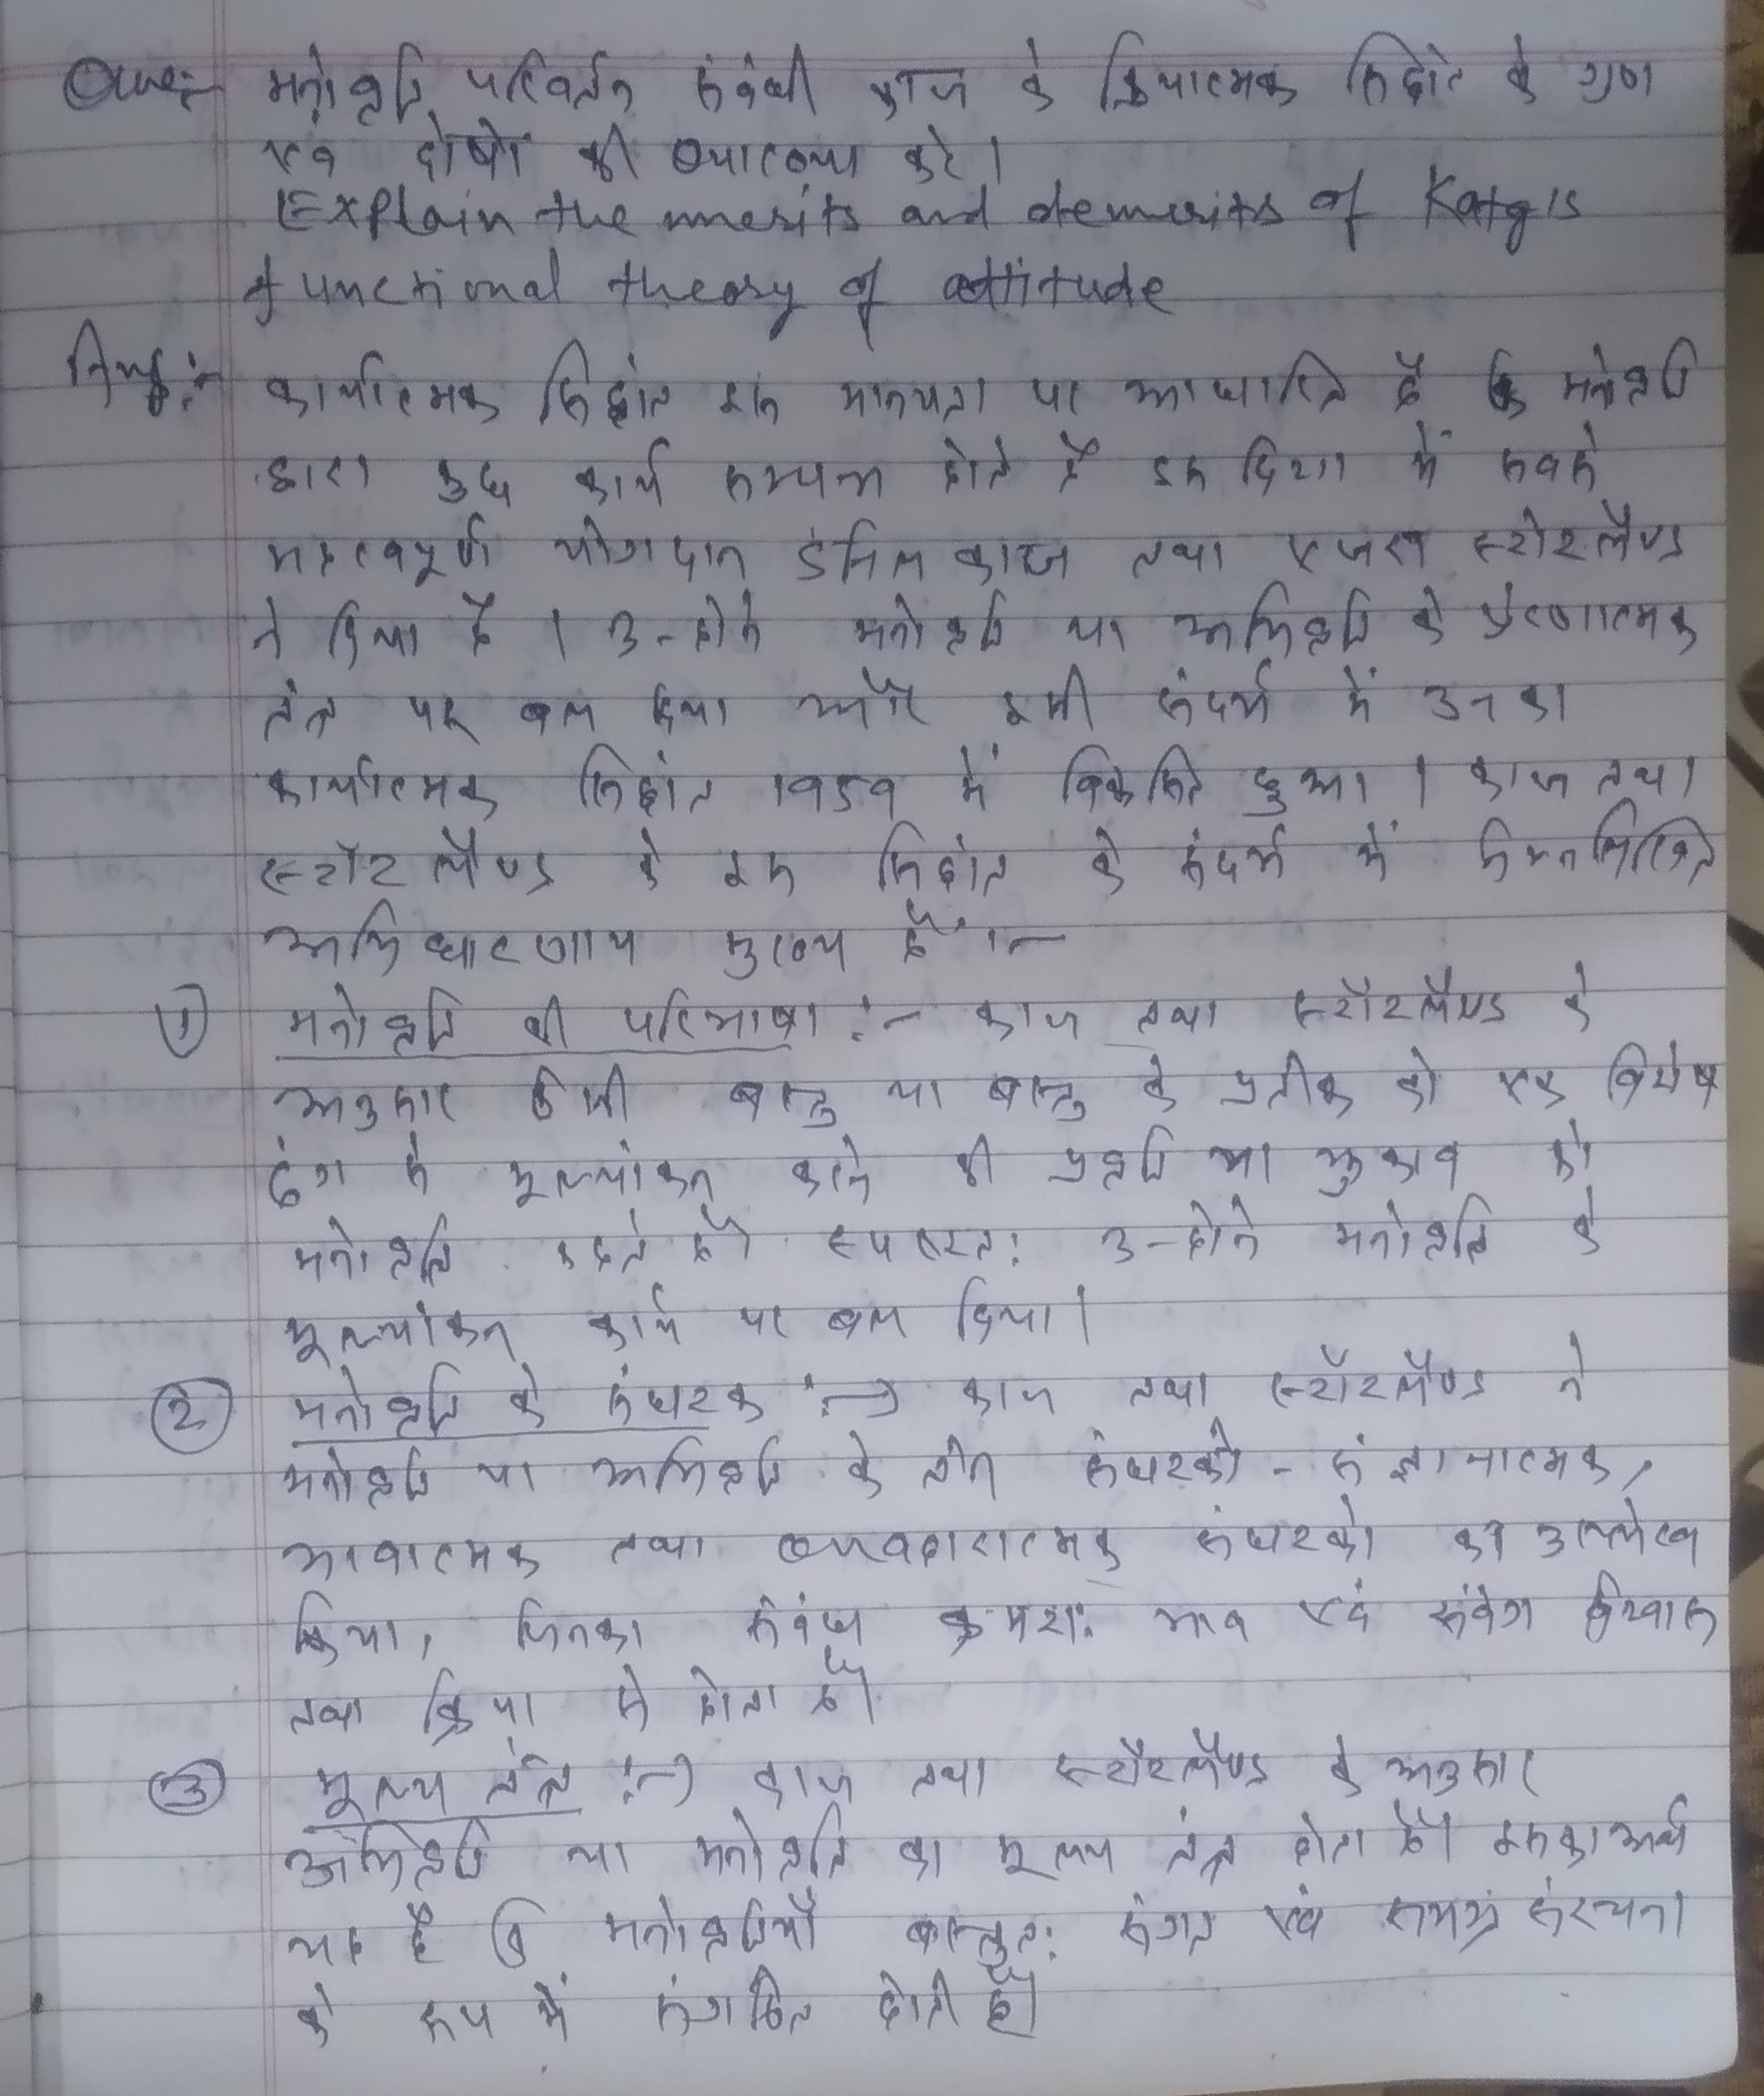 Ques:- मनोवृत्ति परिवर्तन संबंधी काज के क्रियात्मक सिद्धांत के गुण
एवं दोषों की व्याख्या करे।
Explain the merits and demerits of Katz's
functional theory of attitude
कार्यात्मक सिद्धांत इस मान्यता पर आधारित है कि मनोवृत्ति
द्वारा कुछ कार्य सम्पन्न होते है इस दिशा में सबसे
महत्वपूर्ण योगदान डेनियल काज तथा एजरा स्टोटलैण्ड
ने दिया है । उन्होंने मनोवृत्ति या अभिवृत्ति के प्रेरणात्मक
तंत्र पर बल दिया और इसी संदर्भ में उनका
कार्यात्मक सिद्धांत 1959 में विकसित हुआ । काज तथा
स्टॉटलैण्ड के इस सिद्धांत के संदर्भ में निम्नलिखित
अभिधारणाय मुख्य है :-
① मनोवृत्ति की परिभाषा :- काज तथा स्टॉटलैण्ड के
अनुसार किसी वस्तु या वस्तु के प्रतीक को एक विशेष
ढंग से मूल्यांकन करने की प्रवृत्ति या झुकाव को
मनोवृत्ति कहते है। स्पष्टत: उन्होंने मनोवृत्ति के
मूल्यांकन कार्य पर बल दिया।
② मनोवृत्ति के संघटक :-> काज तथा स्टॉटलैण्ड ने
मनोवृत्ति या अभिवृत्ति के तीन संघटकों - संज्ञानात्मक,
भावात्मक तथा व्यवहारात्मक संघटको का उल्लेख
किया, जिनका संबंध क्रमश: भाव एवं संवेग विश्वास
तथा क्रिया से होता है।
③ मूल्य तंत्र :-> काज तथा स्टॉटलैण्ड के अनुसार
अभिवृत्ति या मनोवृत्ति का मूल्य तंत्र होता है। इसका अर्थ
यह है कि मनोवृत्तियाँ वस्तुत: संगत एवं समग्र संरचना
के रूप में संगठित होती है।